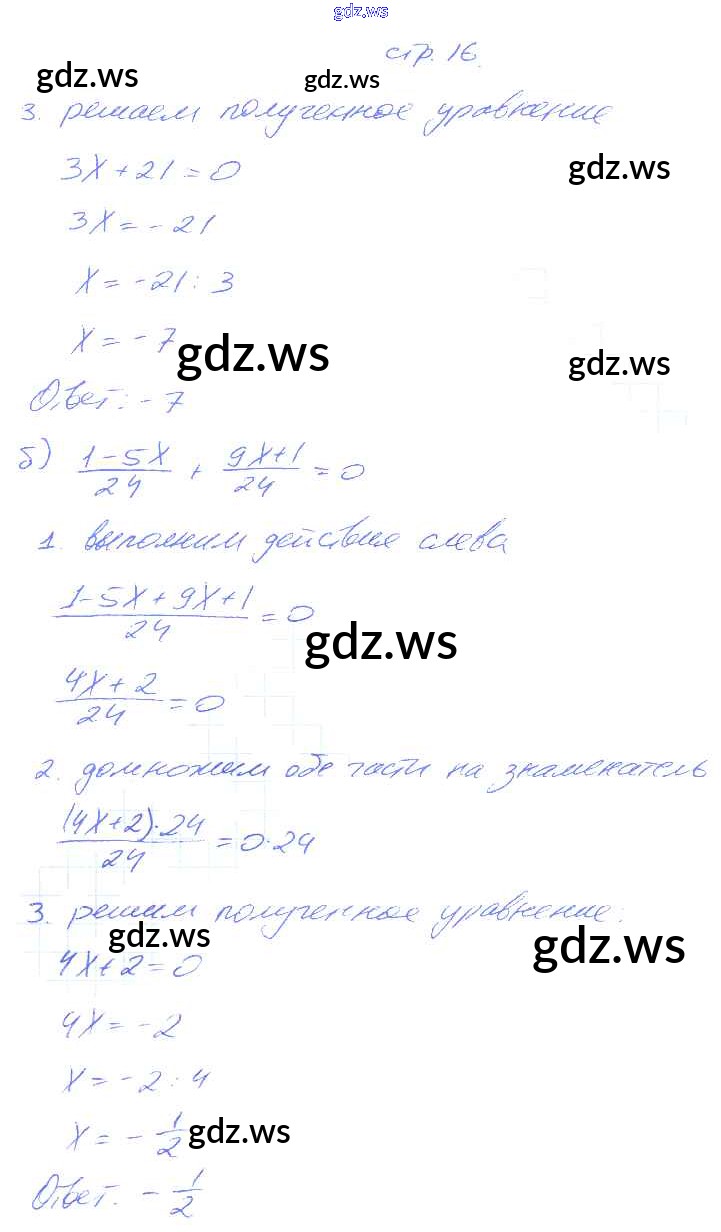 gdz.ws
стр. 16.
gdz.ws
gdz.ws
3. решаем полученное уравнение
3x + 21 = 0
gdz.ws
3x = - 21
x = - 21 : 3
x = - 7
gdz.ws
gdz.ws
Ответ: - 7
б) (1-5x)/24 + (9x+1)/24 = 0
1. выполним действие слева
(1-5x+9x+1)/24 = 0
gdz.ws
(4x+2)/24 = 0
2. домножим обе части на знаменатель
((4x+2)·24)/24 = 0·24
3. решим полученное уравнение:
gdz.ws
gdz.ws
4x+2=0
4x = - 2
x = - 2 : 4
x = - 1/2
gdz.ws
Ответ. - 1/2